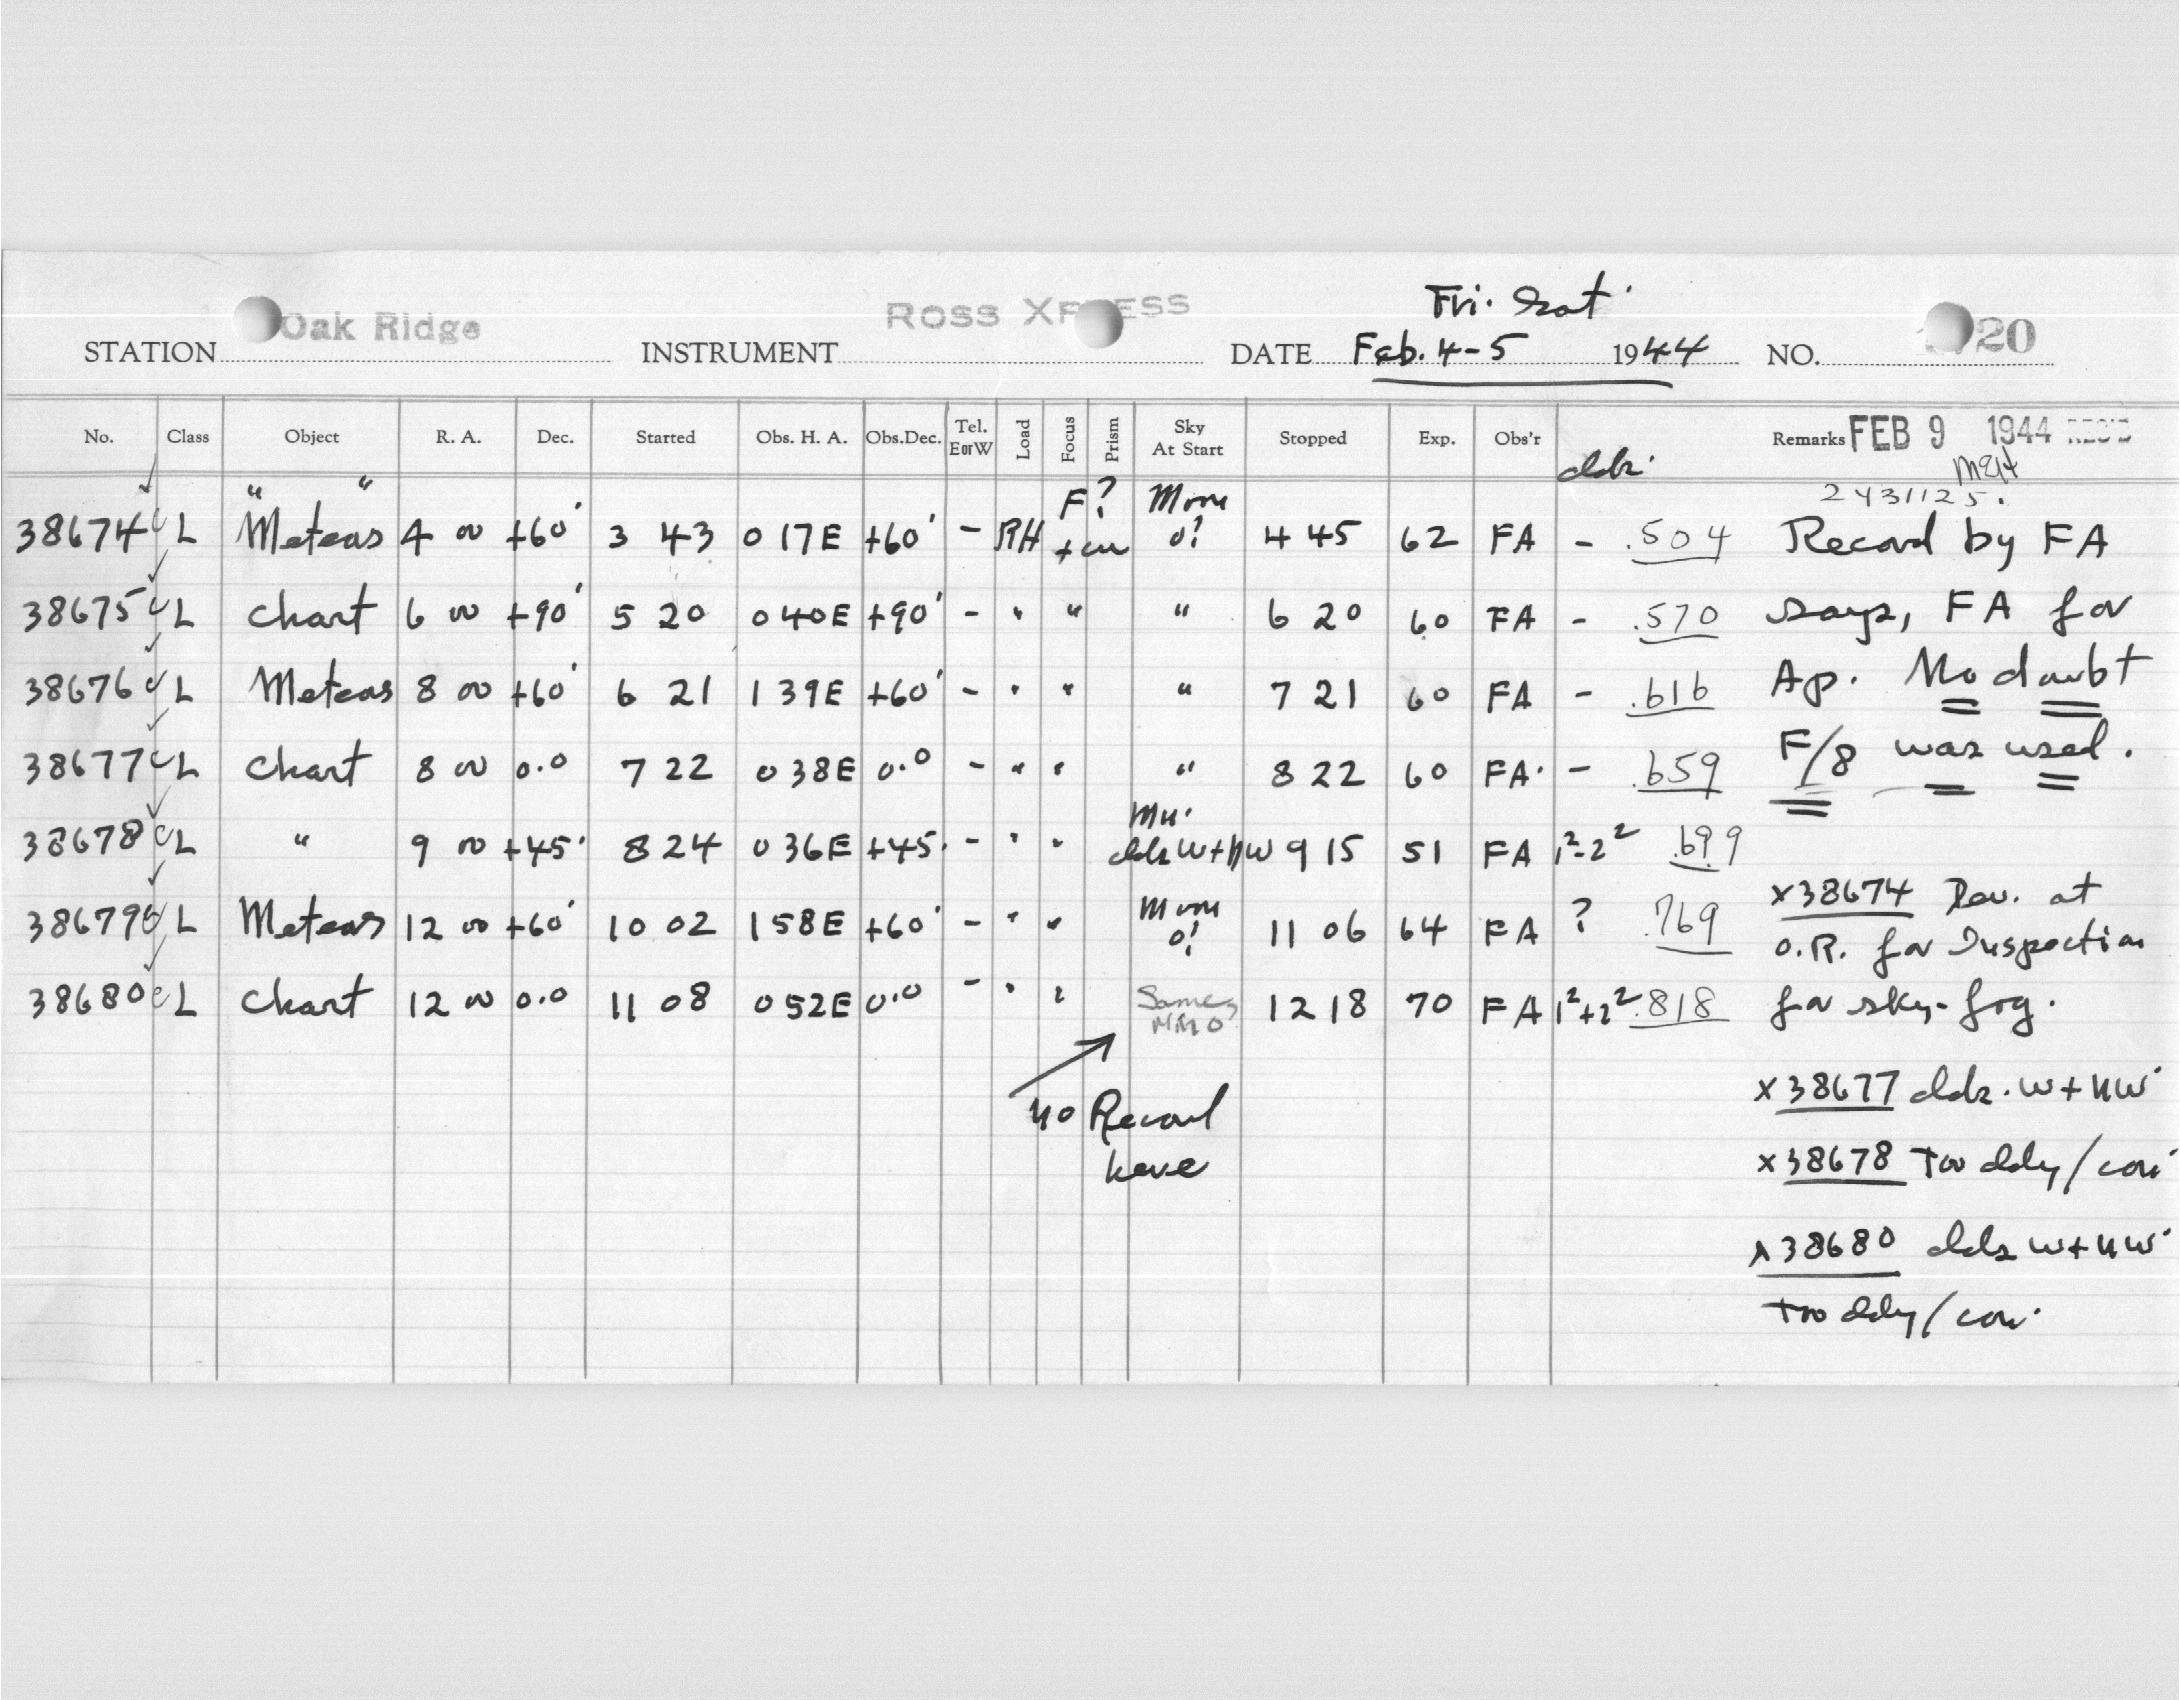 Fri. Sat.
STATION Oak Ridge INSTRUMENT ROSS XPRESS DATE Feb. 4-5 1944 NO. 20
No. Class Object R. A. Dec. Started Obs. H. A. Obs.Dec. Tel. E or W Load Focus Prism Sky At Start Stopped Exp. Obs'r clds. Remarks FEB 9 1944 REC'D
" " F? Moon 2431125.
38674 L Meteors 4 00 +60' 3 43 0 17E +60' - RH 0! 4 45 62 FA - .504 Record by FA
38675 L Chart 6 00 +90' 5 20 0 40E +90' - " " " 6 20 60 FA - .570 says, FA for
38676 L Meteors 8 00 +60' 6 21 1 39E +60' - " " " 7 21 60 FA - .616 Ap. No doubt
38677 L Chart 8 00 0.0 7 22 0 38E 0.0 - " " " 8 22 60 FA. - .659 F/8 was used.
38678 L " 9 00 +45' 8 24 0 36E +45. - " " clds W+NW 9 15 51 FA 1²-2² .699
38679 L Meteors 12 00 +60' 10 02 1 58E +60' - " " Moon 0! 11 06 64 FA ? .769 x38674 Dev. at
O.R. for Inspection
38680 L Chart 12 00 0.0 11 08 0 52E 0.0 - " " Same 12 18 70 FA 1²+2² .818 for sky-fog.
no Record here
x38677 clds. W+NW
x38678 Too cldy/con.
x38680 clds W+NW
Too cldy/con.